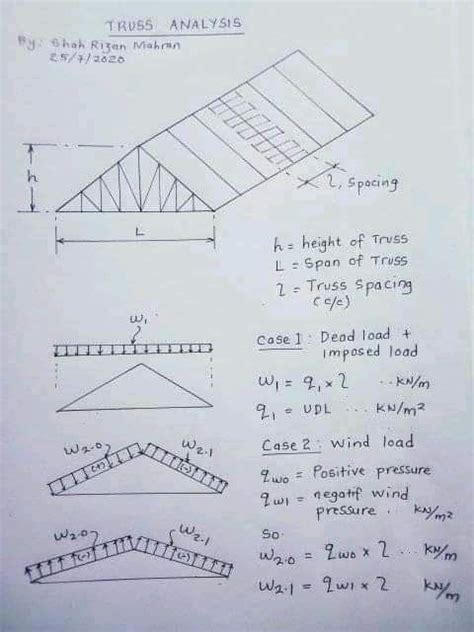 TRUSS ANALYSIS
By: Shah Rizan Mahran
25/7/2020
h
L
l, spacing
h = height of Truss
L = Span of Truss
l = Truss Spacing
(c/c)
W₁
Case 1: Dead load +
imposed load
W₁ = q₁ × l ... KN/m
q₁ = UDL ... KN/m²
Case 2: Wind load
W2.0
W2.1
(+)
(-)
qwo = Positive pressure
qw1 = negatif wind
pressure . KN/m²
So
W2.0 = qwo × l ... KN/m
W2.1 = qw1 × l KN/m
W2.0
W2.1
(-)
(-)